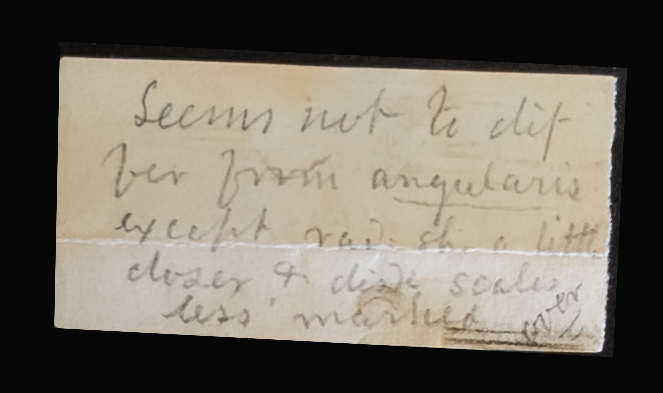 Seems not to dif
fer from angularis
except rad. sh. a little
closer & disk scales
less marked
over